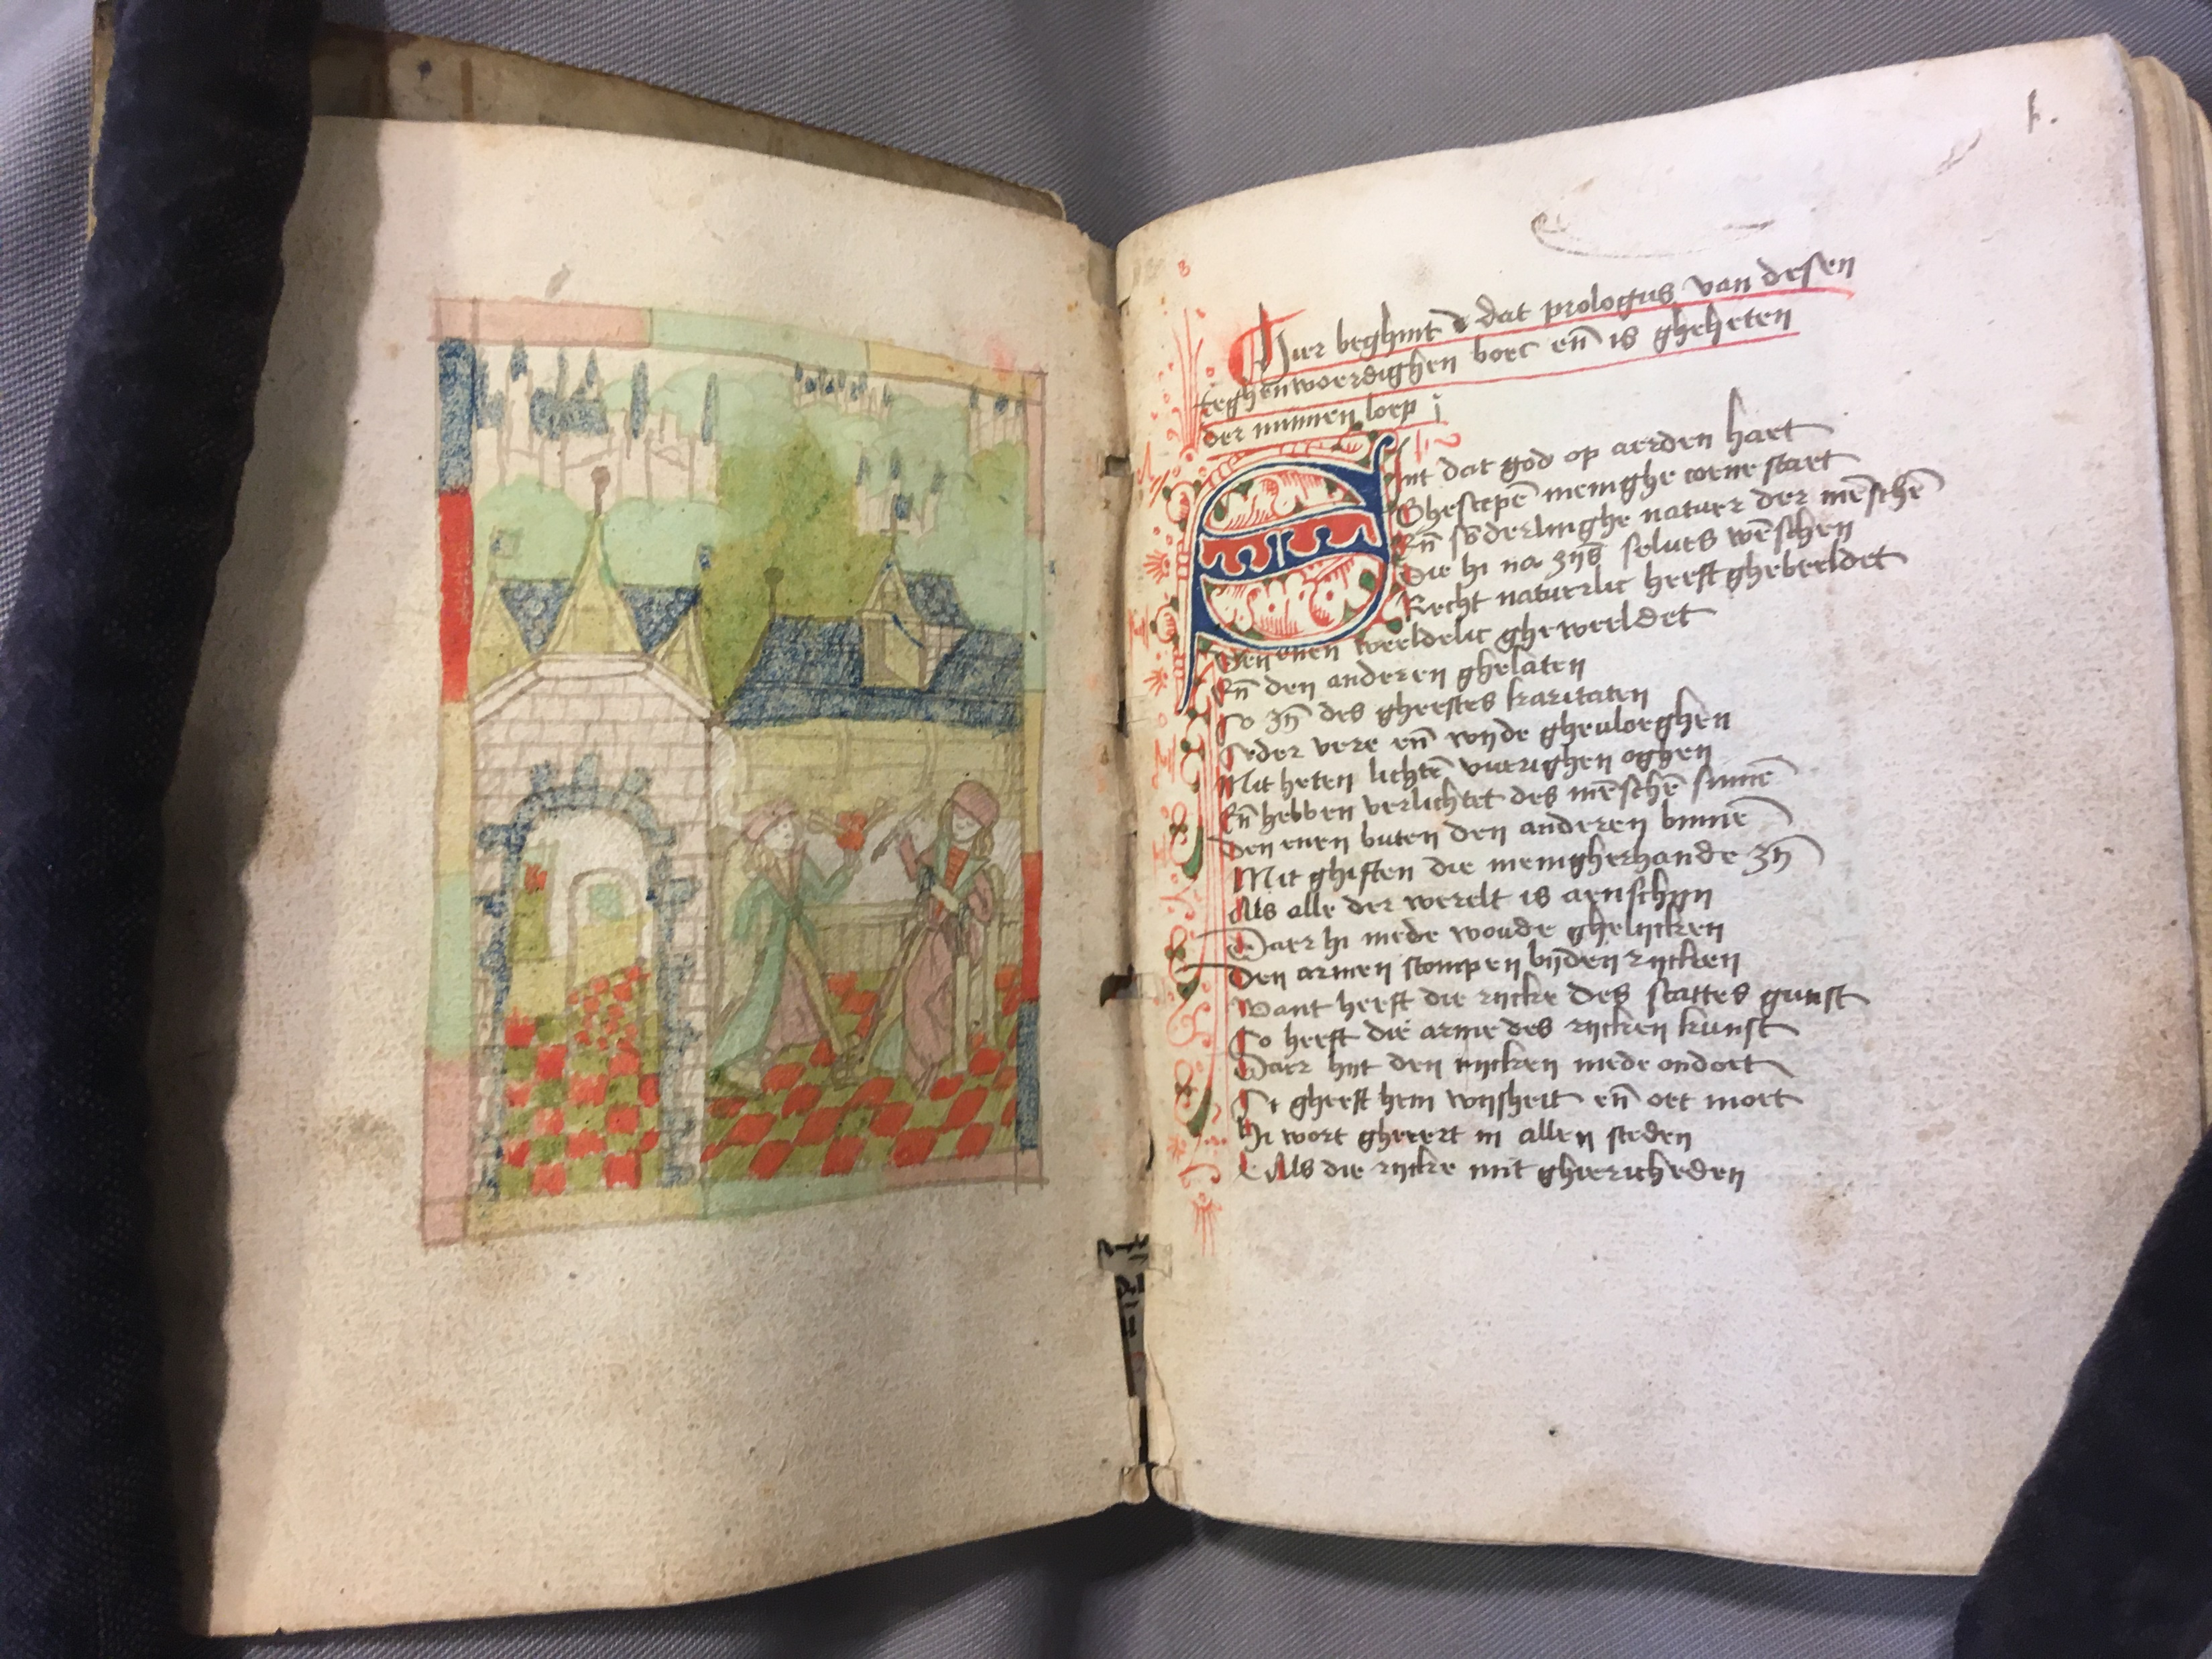 1.
Hier beghint dat prologus van desen
teghenwoerdighen boec en̄ is gheheten
der minnen loep j
Sint dat god op aerden haet
Ghescepē menighe coene staet
En̄ sōderlinghe natuer der mēschē
Die hi na zijs selves wēschen
Recht natuerlic heeft ghebeeldet
Den enen weeldelic gheweeldet
En̄ den anderen ghelaten
So zn̄ des gheestes karitaten
Seder vere en̄ wijde ghevloeghen
Mit heten lichtē vuerighen oghen
En̄ hebben verlichtet des mēschē sinnē
Den enen buten den anderen binnē
Mit ghiften die menigherhande zn̄
Als alle der werelt is aenschijn
Daer hi mede woude ghelijcken
Den armen stompen bijden rijcken
Want heeft die rijcke des scattes gunst
So heeft die arme des rijcken kunst
Daer hijt den rijcken mede ondoet
Si gheeft hem wijsheit en̄ oec moet
Hi wort gheeert in allen steden
Als die rijcke mit ghiericheden